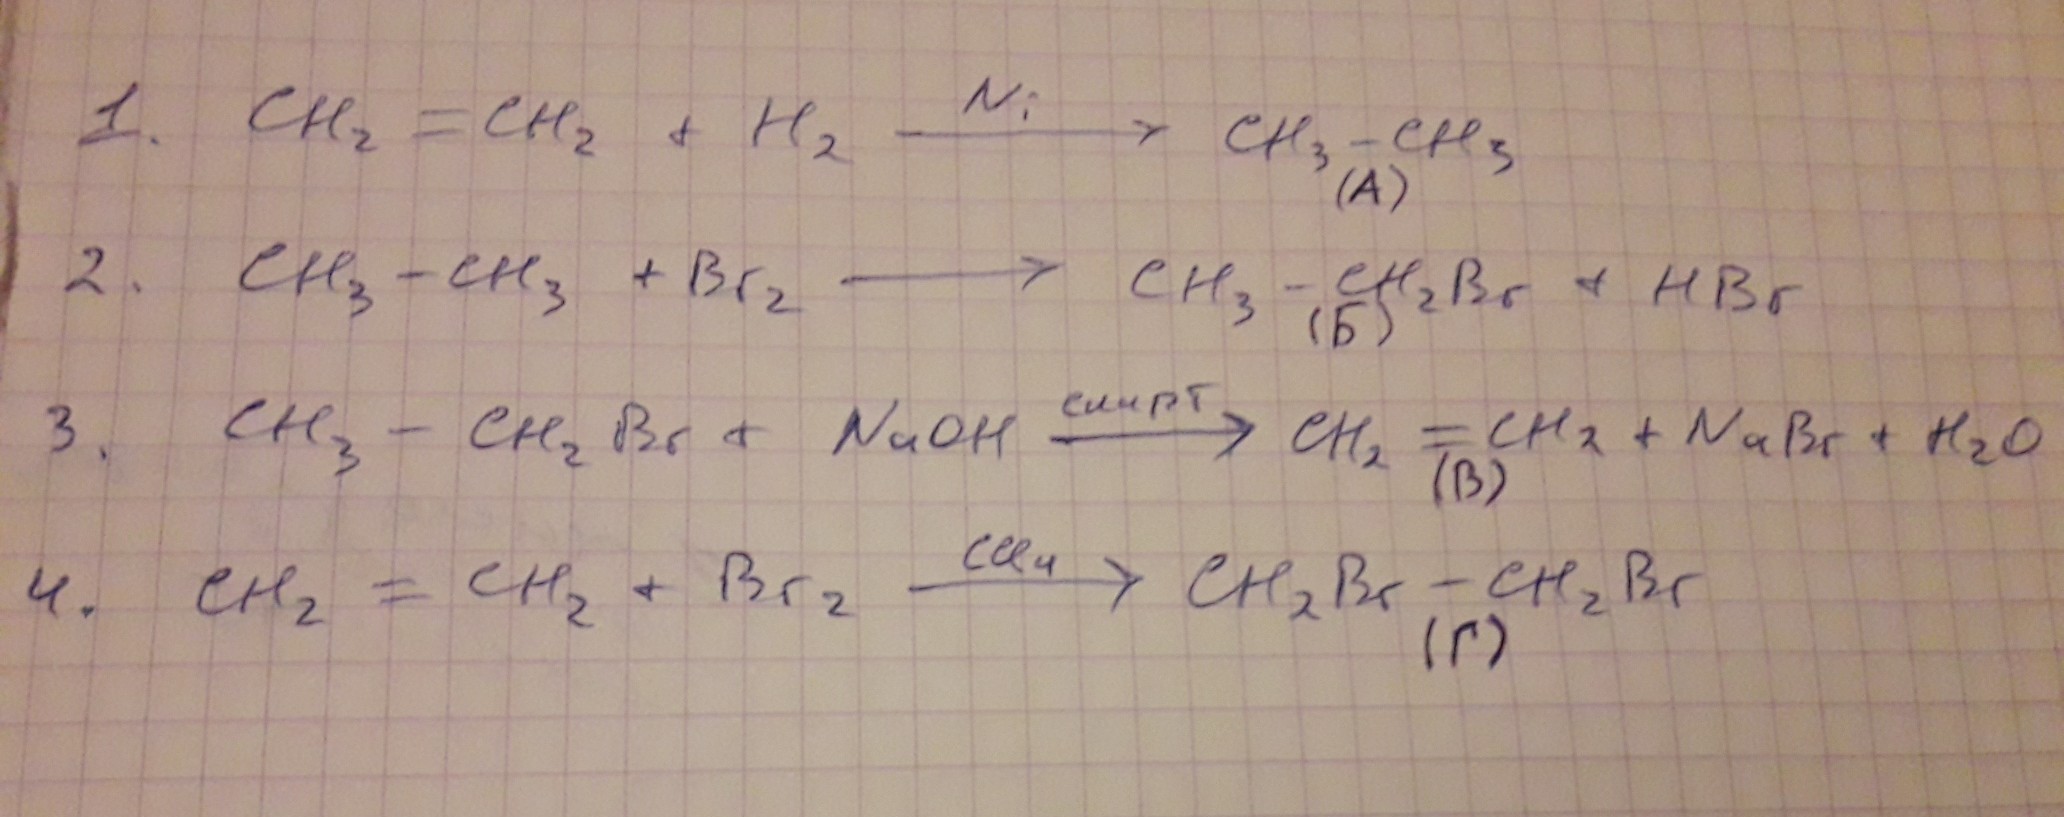 1. CH₂ = CH₂ + H₂ —Ni→ CH₃ – CH₃
(А)
2. CH₃ – CH₃ + Br₂ → CH₃ – CH₂Br + HBr
(Б)
3. CH₃ – CH₂Br + NaOH —спирт→ CH₂ = CH₂ + NaBr + H₂O
(В)
4. CH₂ = CH₂ + Br₂ —CCl₄→ CH₂Br – CH₂Br
(Г)